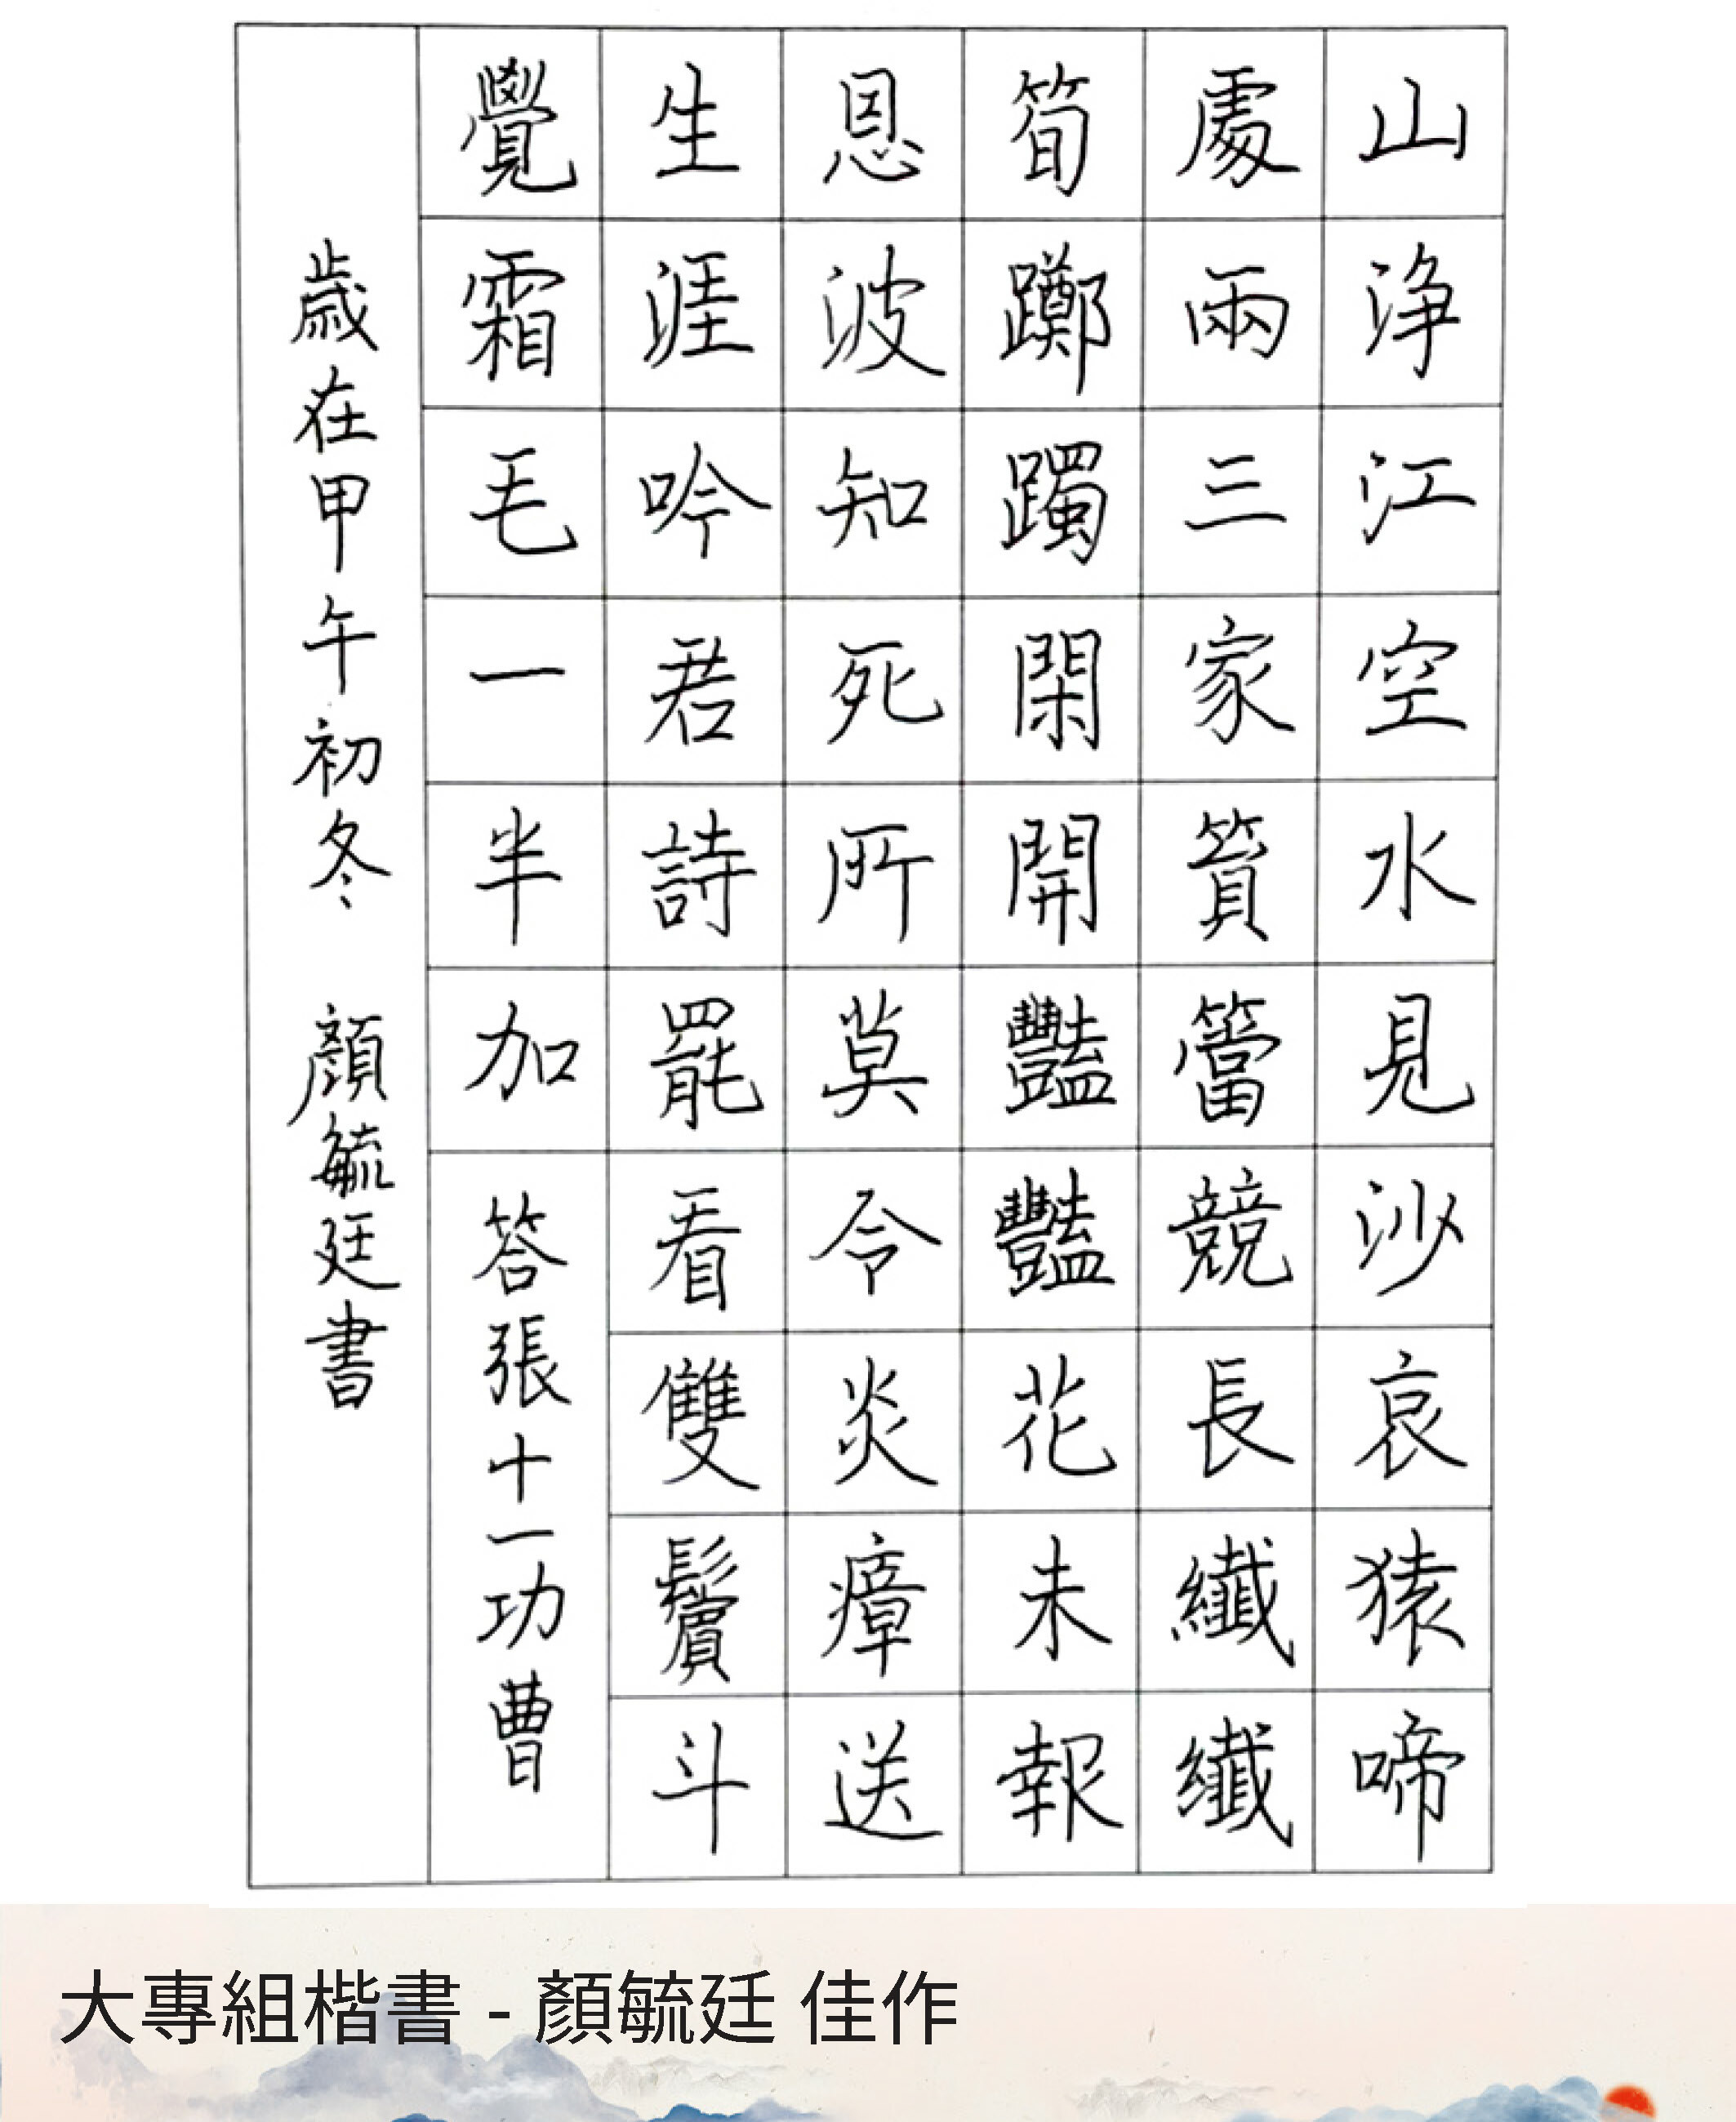 山浄江空水見沙哀猿啼
處兩三家篔簹競長纖纖
筍躑躅閑開豔豔花未報
恩波知死所莫令炎瘴送
生涯吟君詩罷看雙鬢斗
覺霜毛一半加 答張十一功曹
歲在甲午初冬 顏毓廷書
大專組楷書 - 顏毓廷 佳作